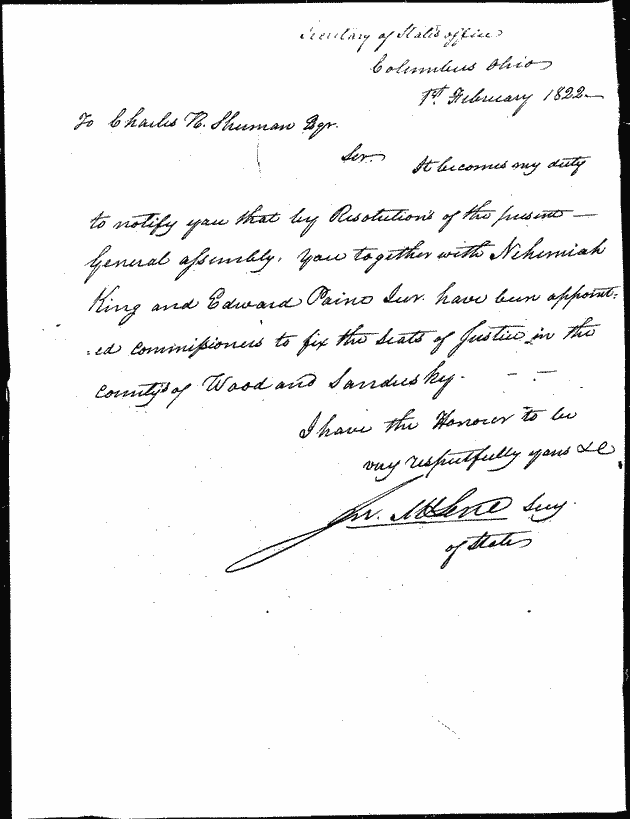 Secretary of State's office
Columbus Ohio
1st. February 1822—
To Charles R. Sherman Esqr.
Sir. It becomes my duty
to notify you that by Resolutions of the present—
General assembly, you together with Nehemiah
King and Edward Paine Iur. have been appoint=
=ed commissioners to fix the seats of Justice in the
county's of Wood and Sandusky. - -
I have the Honour to be
very respectfully yours &c
Jn. McLene Secy.
of State